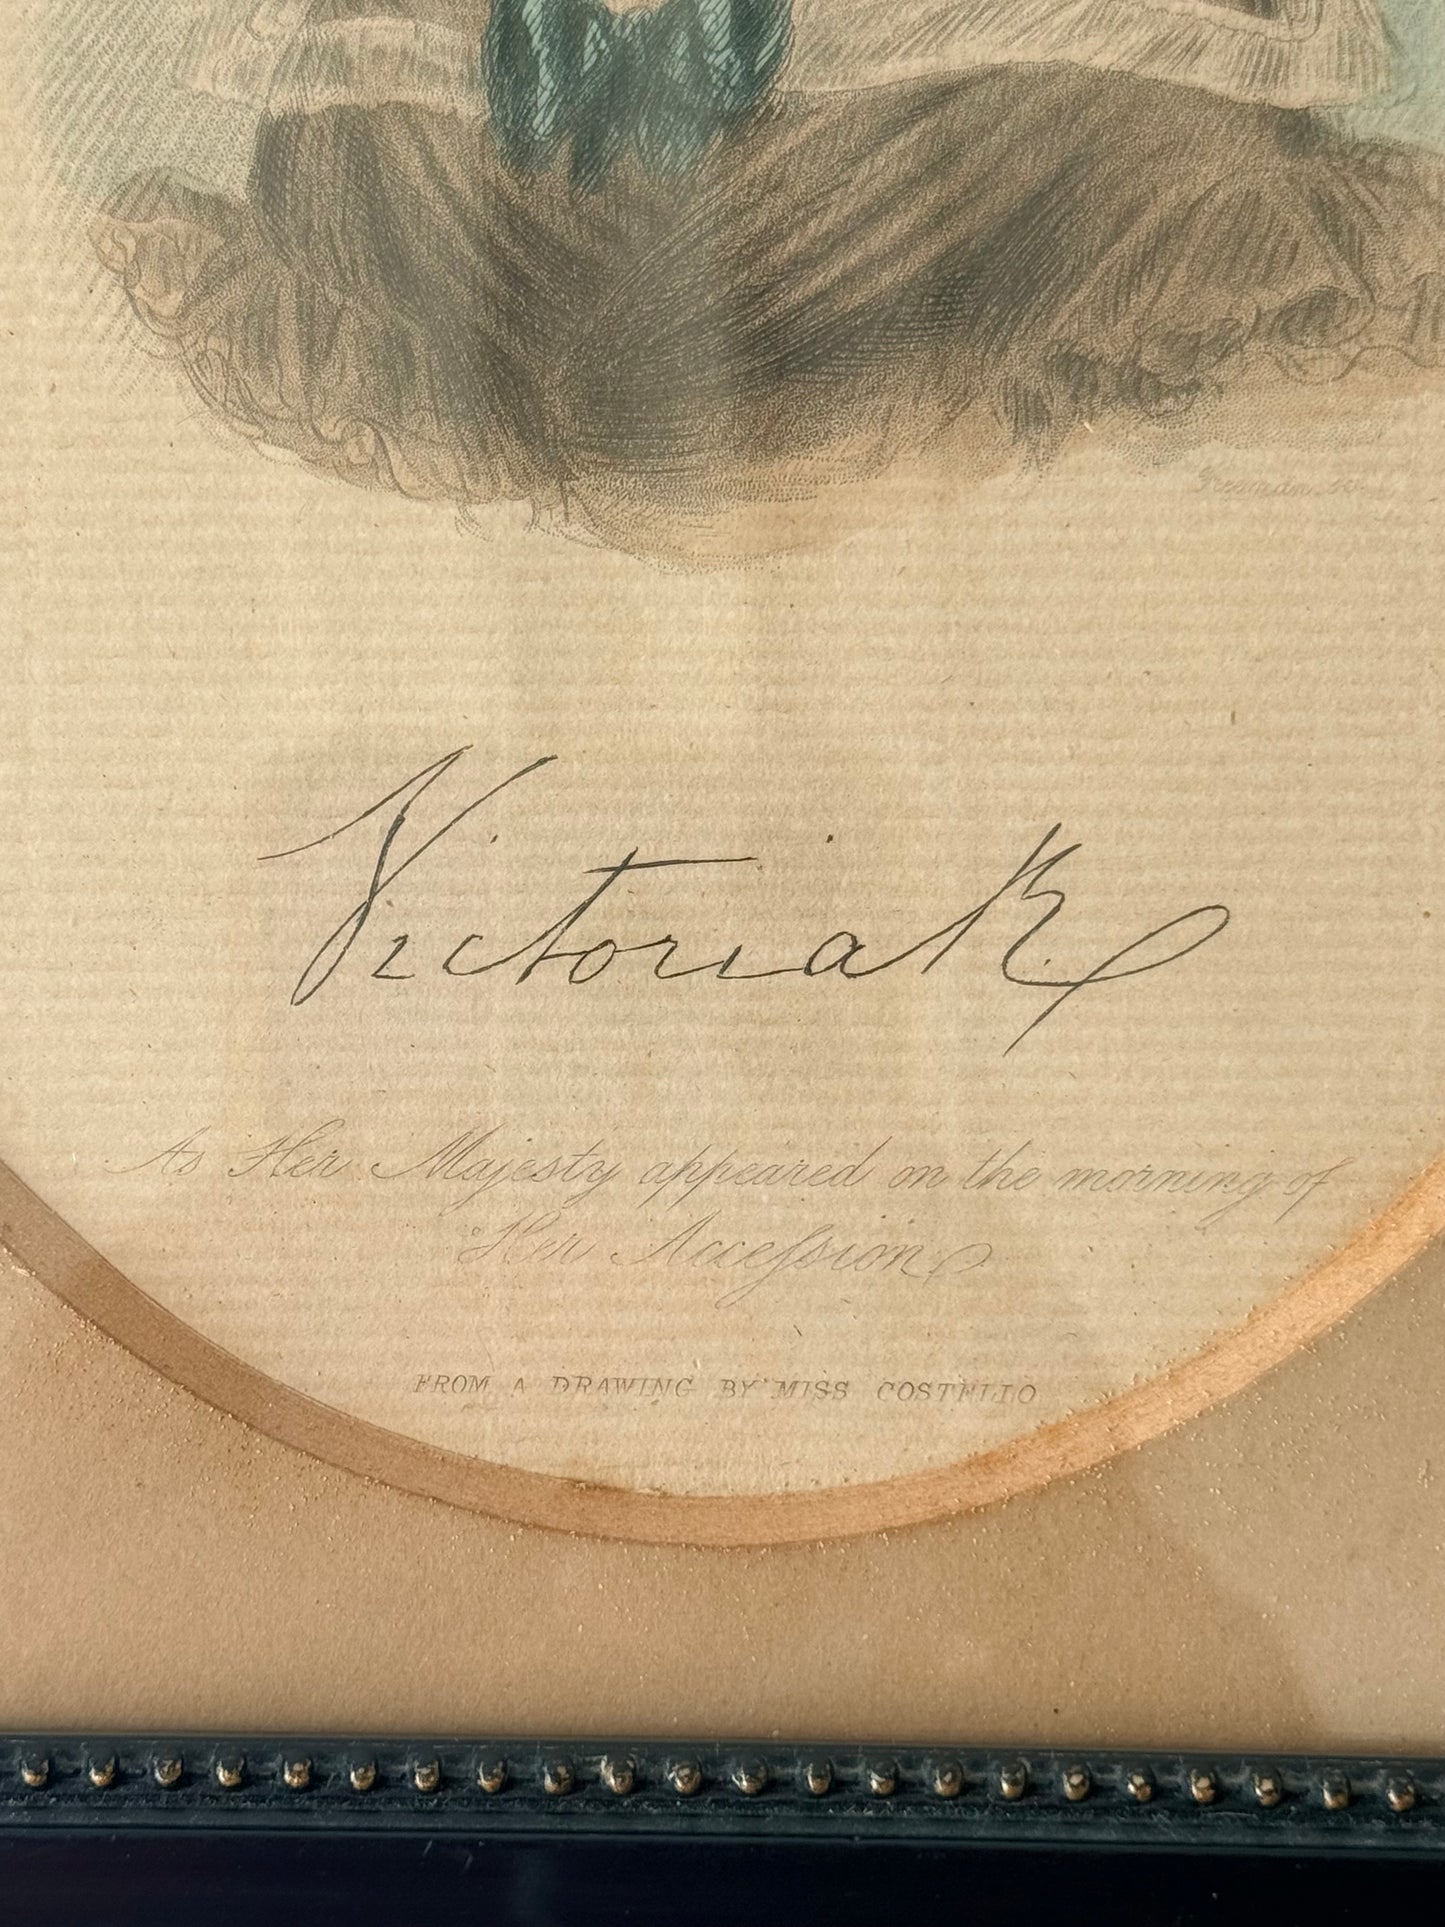 Freeman sc.
Victoria R
As Her Majesty appeared on the morning of
Her Acceſsion
FROM A DRAWING BY MISS COSTELLO